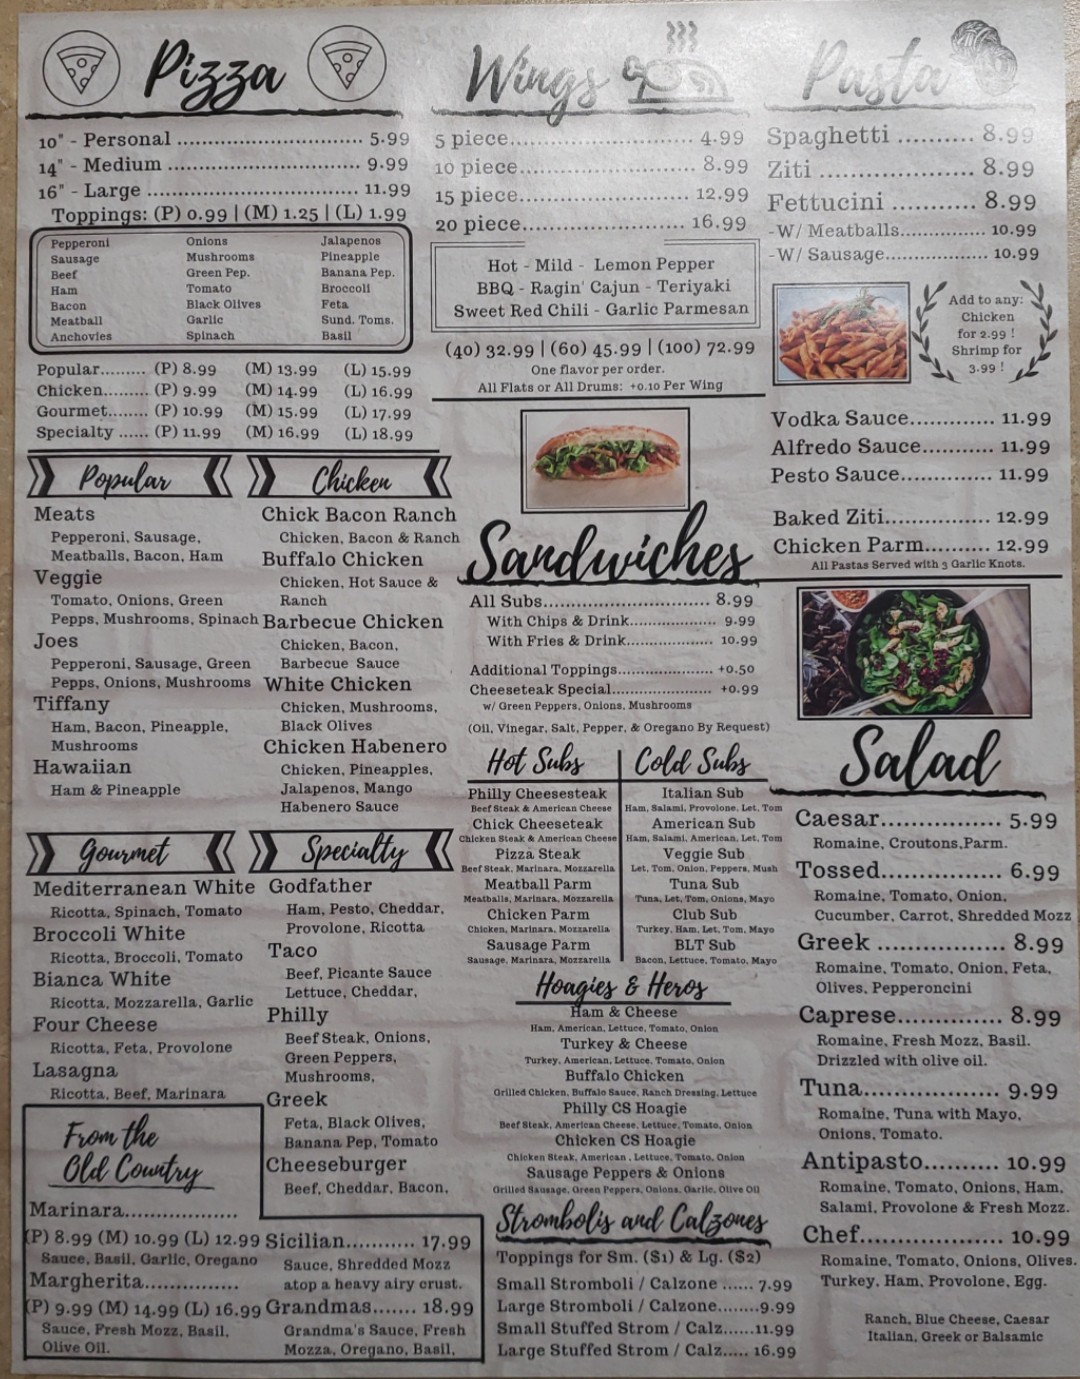 Pizza
10" - Personal .............................. 5.99
14" - Medium ............................... 9.99
16" - Large .................................. 11.99
Toppings: (P) 0.99 | (M) 1.25 | (L) 1.99
Pepperoni Onions Jalapenos
Sausage Mushrooms Pineapple
Beef Green Pep. Banana Pep.
Ham Tomato Broccoli
Bacon Black Olives Feta
Meatball Garlic Sund. Toms.
Anchovies Spinach Basil
Popular......... (P) 8.99 (M) 13.99 (L) 15.99
Chicken......... (P) 9.99 (M) 14.99 (L) 16.99
Gourmet........ (P) 10.99 (M) 15.99 (L) 17.99
Specialty ...... (P) 11.99 (M) 16.99 (L) 18.99
Popular
Meats
Pepperoni, Sausage,
Meatballs, Bacon, Ham
Veggie
Tomato, Onions, Green
Pepps, Mushrooms, Spinach
Joes
Pepperoni, Sausage, Green
Pepps, Onions, Mushrooms
Tiffany
Ham, Bacon, Pineapple,
Mushrooms
Hawaiian
Ham & Pineapple
Chicken
Chick Bacon Ranch
Chicken, Bacon & Ranch
Buffalo Chicken
Chicken, Hot Sauce &
Ranch
Barbecue Chicken
Chicken, Bacon,
Barbecue Sauce
White Chicken
Chicken, Mushrooms,
Black Olives
Chicken Habenero
Chicken, Pineapples,
Jalapenos, Mango
Habenero Sauce
Gourmet
Mediterranean White
Ricotta, Spinach, Tomato
Broccoli White
Ricotta, Broccoli, Tomato
Bianca White
Ricotta, Mozzarella, Garlic
Four Cheese
Ricotta, Feta, Provolone
Lasagna
Ricotta, Beef, Marinara
Specialty
Godfather
Ham, Pesto, Cheddar,
Provolone, Ricotta
Taco
Beef, Picante Sauce
Lettuce, Cheddar,
Philly
Beef Steak, Onions,
Green Peppers,
Mushrooms,
Greek
Feta, Black Olives,
Banana Pep, Tomato
Cheeseburger
Beef, Cheddar, Bacon,
From the
Old Country
Marinara..................
(P) 8.99 (M) 10.99 (L) 12.99
Sauce, Basil, Garlic, Oregano
Margherita...............
(P) 9.99 (M) 14.99 (L) 16.99
Sauce, Fresh Mozz, Basil,
Olive Oil.
Sicilian........... 17.99
Sauce, Shredded Mozz
atop a heavy airy crust.
Grandmas....... 18.99
Grandma's Sauce, Fresh
Mozza, Oregano, Basil,
Wings
5 piece.............................. 4.99
10 piece............................ 8.99
15 piece............................ 12.99
20 piece........................... 16.99
Hot - Mild - Lemon Pepper
BBQ - Ragin' Cajun - Teriyaki
Sweet Red Chili - Garlic Parmesan
(40) 32.99 | (60) 45.99 | (100) 72.99
One flavor per order.
All Flats or All Drums: +0.10 Per Wing
Sandwiches
All Subs.............................. 8.99
With Chips & Drink.................. 9.99
With Fries & Drink................... 10.99
Additional Toppings.................. +0.50
Cheeseteak Special.................... +0.99
w/ Green Peppers, Onions, Mushrooms
(Oil, Vinegar, Salt, Pepper, & Oregano By Request)
Hot Subs
Philly Cheesesteak
Beef Steak & American Cheese
Chick Cheeseteak
Chicken Steak & American Cheese
Pizza Steak
Beef Steak, Marinara, Mozzarella
Meatball Parm
Meatballs, Marinara, Mozzarella
Chicken Parm
Chicken, Marinara, Mozzarella
Sausage Parm
Sausage, Marinara, Mozzarella
Cold Subs
Italian Sub
Ham, Salami, Provolone, Let, Tom
American Sub
Ham, Salami, American, Let, Tom
Veggie Sub
Let, Tom, Onion, Peppers, Mush
Tuna Sub
Tuna, Let, Tom, Onions, Mayo
Club Sub
Turkey, Ham, Let, Tom, Mayo
BLT Sub
Bacon, Lettuce, Tomato, Mayo
Hoagies & Heros
Ham & Cheese
Ham, American, Lettuce, Tomato, Onion
Turkey & Cheese
Turkey, American, Lettuce, Tomato, Onion
Buffalo Chicken
Grilled Chicken, Buffalo Sauce, Ranch Dressing, Lettuce
Philly CS Hoagie
Beef Steak, American Cheese, Lettuce, Tomato, Onion
Chicken CS Hoagie
Chicken Steak, American , Lettuce, Tomato, Onion
Sausage Peppers & Onions
Grilled Sausage, Green Peppers, Onions, Garlic, Olive Oil
Strombolis and Calzones
Toppings for Sm. ($1) & Lg. ($2)
Small Stromboli / Calzone ...... 7.99
Large Stromboli / Calzone.......9.99
Small Stuffed Strom / Calz......11.99
Large Stuffed Strom / Calz..... 16.99
Pasta
Spaghetti .......... 8.99
Ziti .................... 8.99
Fettucini ........... 8.99
-W/ Meatballs.............. 10.99
-W/ Sausage................. 10.99
Add to any:
Chicken
for 2.99 !
Shrimp for
3.99 !
Vodka Sauce............ 11.99
Alfredo Sauce.......... 11.99
Pesto Sauce............. 11.99
Baked Ziti................ 12.99
Chicken Parm.......... 12.99
All Pastas Served with 3 Garlic Knots.
Salad
Caesar................ 5.99
Romaine, Croutons,Parm.
Tossed................ 6.99
Romaine, Tomato, Onion,
Cucumber, Carrot, Shredded Mozz
Greek ................. 8.99
Romaine, Tomato, Onion, Feta,
Olives, Pepperoncini
Caprese.............. 8.99
Romaine, Fresh Mozz, Basil.
Drizzled with olive oil.
Tuna................... 9.99
Romaine, Tuna with Mayo,
Onions, Tomato.
Antipasto.......... 10.99
Romaine, Tomato, Onions, Ham,
Salami, Provolone & Fresh Mozz.
Chef.................... 10.99
Romaine, Tomato, Onions, Olives.
Turkey, Ham, Provolone, Egg.
Ranch, Blue Cheese, Caesar
Italian, Greek or Balsamic